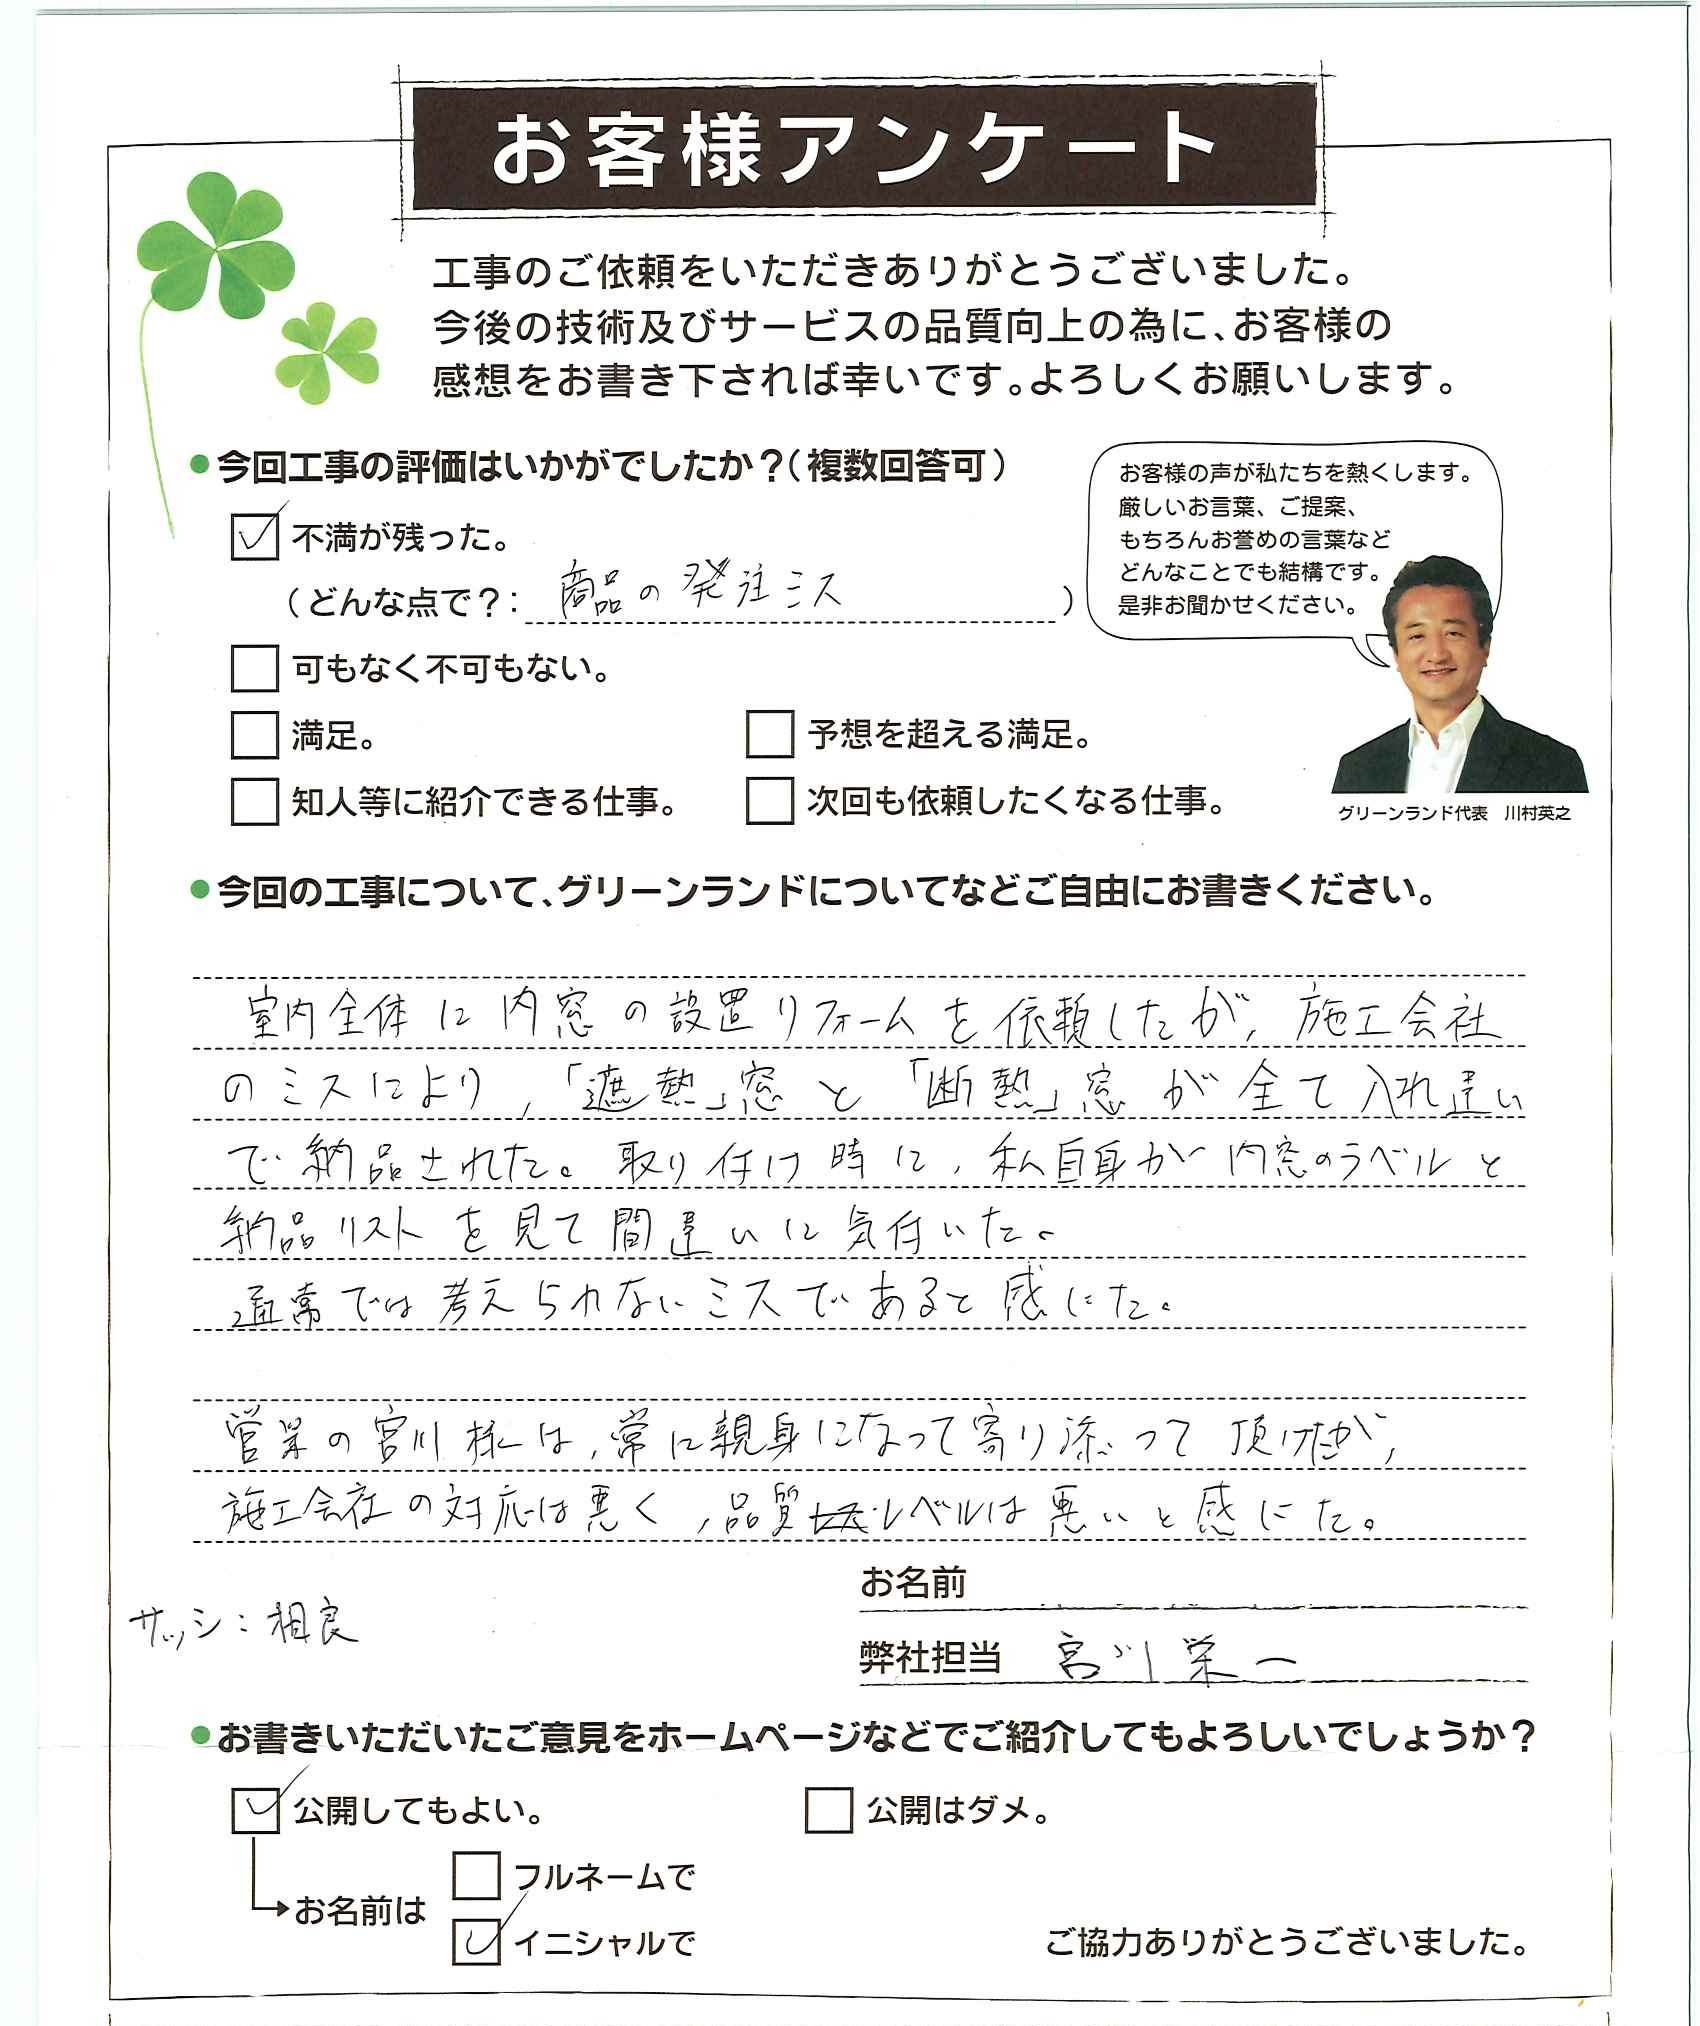 お客様アンケート
工事のご依頼をいただきありがとうございました。
今後の技術及びサービスの品質向上の為に、お客様の
感想をお書き下されば幸いです。よろしくお願いします。
●今回工事の評価はいかがでしたか？(複数回答可)
不満が残った。
(どんな点で？: 商品の発注ミス)
可もなく不可もない。
満足。 予想を超える満足。
知人等に紹介できる仕事。 次回も依頼したくなる仕事。
お客様の声が私たちを熱くします。
厳しいお言葉、ご提案、
もちろんお誉めの言葉など
どんなことでも結構です。
是非お聞かせください。
グリーンランド代表 川村英之
●今回の工事について、グリーンランドについてなどご自由にお書きください。
室内全体に内窓の設置リフォームを依頼したが, 施工会社
のミスにより,「遮熱」窓と「断熱」窓が全て入れ違い
で納品された。取り付け時に, 私自身が内窓のラベルと
納品リストを見て間違いに気付いた。
通常では考えられないミスであると感じた。
営業の宮川様は, 常に親身になって寄り添って頂けたが,
施工会社の対応は悪く, 品質レベルは悪いと感じた。
お名前
サッシ:相良
弊社担当 宮川栄一
●お書きいただいたご意見をホームページなどでご紹介してもよろしいでしょうか？
公開してもよい。 公開はダメ。
フルネームで
お名前は
イニシャルで
ご協力ありがとうございました。